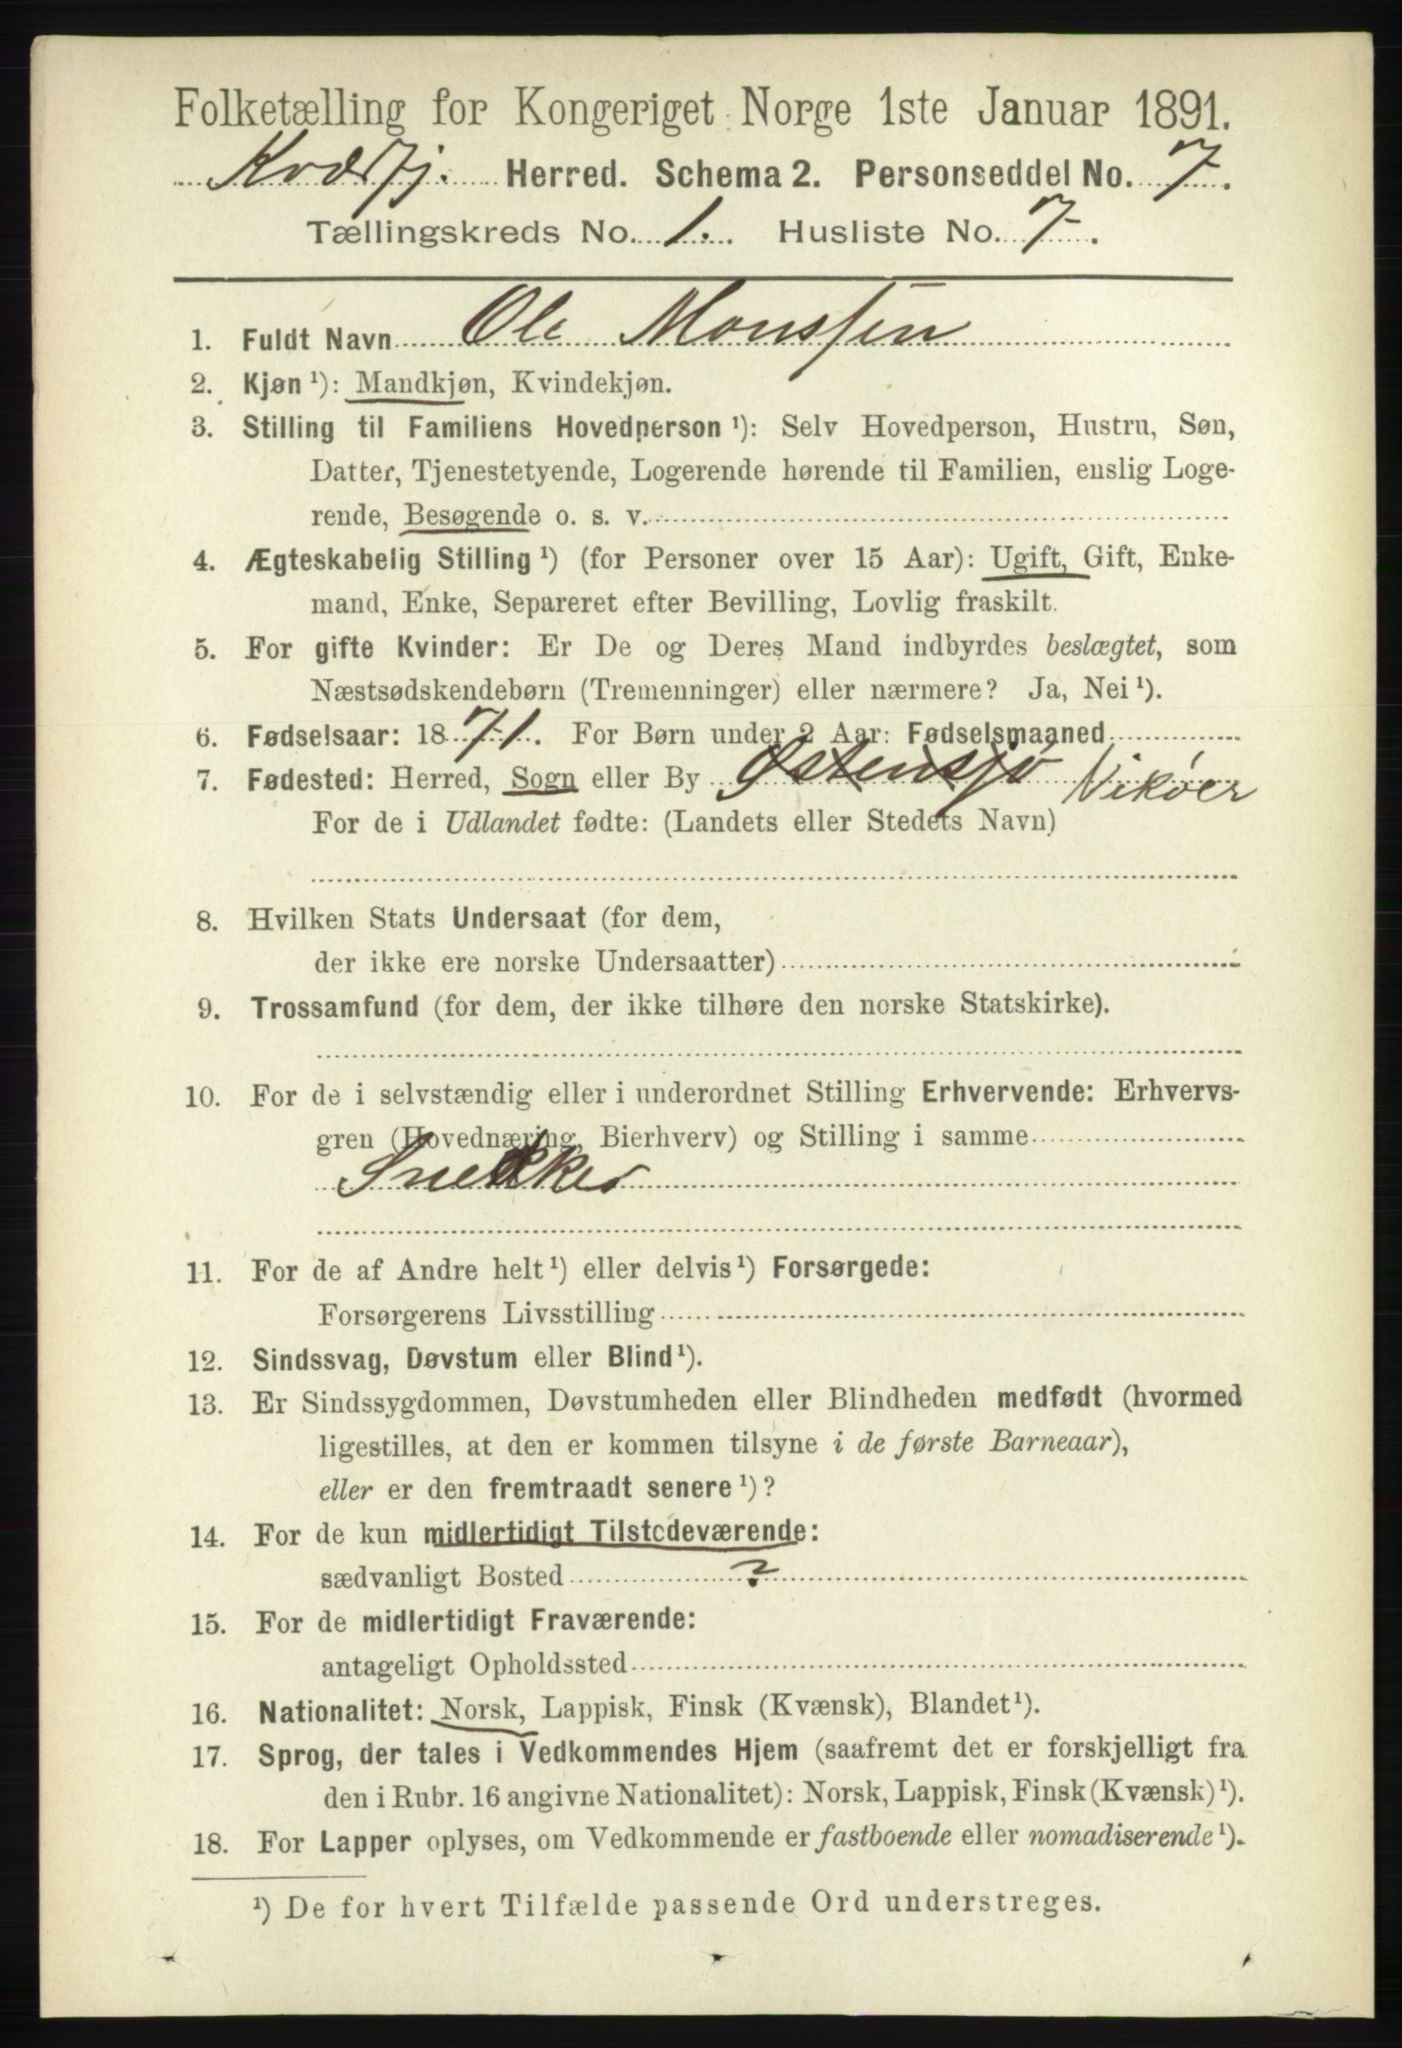 Folketælling for Kongeriget Norge 1ste Januar 1891.
Kvæfj. Herred. Schema 2. Personseddel No. 7.
Tællingskreds No. 1. Husliste No. 7.
1. Fuldt Navn Ole Monssen
2. Kjøn ¹): Mandkjøn, Kvindekjøn.
3. Stilling til Familiens Hovedperson ¹): Selv Hovedperson, Hustru, Søn,
Datter, Tjenestetyende, Logerende hørende til Familien, enslig Loge-
rende, Besøgende o. s. v.
4. Ægteskabelig Stilling ¹) (for Personer over 15 Aar): Ugift, Gift, Enke-
mand, Enke, Separeret efter Bevilling, Lovlig fraskilt.
5. For gifte Kvinder: Er De og Deres Mand indbyrdes beslægtet, som
Næstsødskendebørn (Tremenninger) eller nærmere? Ja, Nei ¹).
6. Fødselsaar: 1871. For Børn under 2 Aar: Fødselsmaaned
7. Fødested: Herred, Sogn eller By Østensjø Vikøer
For de i Udlandet fødte: (Landets eller Stedets Navn)
8. Hvilken Stats Undersaat (for dem,
der ikke ere norske Undersaatter)
9. Trossamfund (for dem, der ikke tilhøre den norske Statskirke).
10. For de i selvstændig eller i underordnet Stilling Erhvervende: Erhvervs-
gren (Hovednæring, Bierhverv) og Stilling i samme
Snekker
11. For de af Andre helt ¹) eller delvis ¹) Forsørgede:
Forsørgerens Livsstilling
12. Sindssvag, Døvstum eller Blind ¹).
13. Er Sindssygdommen, Døvstumheden eller Blindheden medfødt (hvormed
ligestilles, at den er kommen tilsyne i de første Barneaar),
eller er den fremtraadt senere ¹)?
14. For de kun midlertidigt Tilstedeværende:
sædvanligt Bosted ?
15. For de midlertidigt Fraværende:
antageligt Opholdssted
16. Nationalitet: Norsk, Lappisk, Finsk (Kvænsk), Blandet ¹).
17. Sprog, der tales i Vedkommendes Hjem (saafremt det er forskjelligt fra
den i Rubr. 16 angivne Nationalitet): Norsk, Lappisk, Finsk (Kvænsk) ¹).
18. For Lapper oplyses, om Vedkommende er fastboende eller nomadiserende ¹).
¹) De for hvert Tilfælde passende Ord understreges.